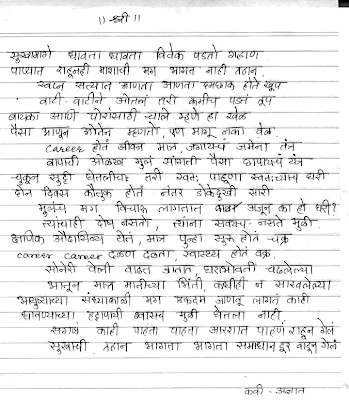 ॥ श्री ॥
सुखामागे धावता धावता विवेक पडतो गहाण
पाण्यात राहूनही माशाची मग भागत नाही तहान
स्वप्न सत्यात आणता आणता दमछाक होते खूप
वाटी-वाटीने ओतलं तरी कमीच पडतं तूप
बायको आणि पोरांसाठी चाले म्हणे हा खेळ
पैसा आणून ओतेन म्हणतो, पण मागू नका वेळ.
career होतं जीवन मात्र, जगायचं जमेना तंत्र
बापाची ओळख मुलं सांगती पैसा छापायचं यंत्र
चुकून सुट्टी घेतलीच तरी स्वतः पाहुणा स्वतःच्याच घरी
दोन दिवस कौतुक होतं नंतर डोकेदुखी सारी
मुलंच मग विचारू लागतात बाबा अजून का हो घरी?
त्यांचाही दोष नसतो, त्यांना सवयच नसते मुळी
क्षणिक औदासिन्य येतं, मात्र पुन्हा सुरू होतं चक्र
career career दळण दळता, स्वास्थ्य होतं वक्र
सोनेरी वेली वाढत जातात, घराभोवती चढलेल्या
आतून मात्र मातीच्या भिंती, कधीही न सारवलेल्या
आयुष्याच्या संध्याकाळी मग एकदम जाणवू लागतं काही
धावण्याच्या हट्टापायी श्वासच मुळी घेतला नाही
सगळं काही पाहता पाहता आरशात पाहणं राहून गेलं
सुखाची तहान भागता भागता समाधान दूर वाहून गेलं
कवी - अज्ञात